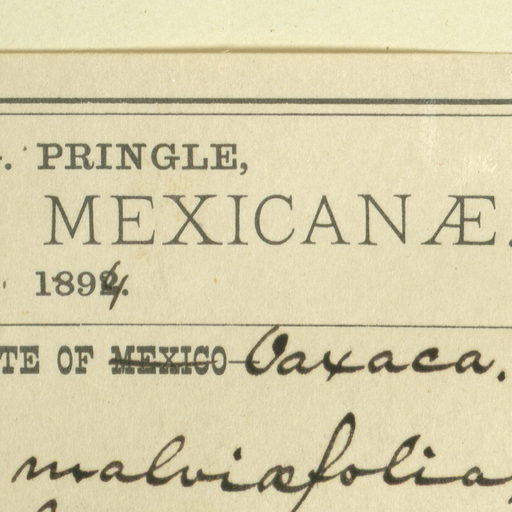 . PRINGLE,
MEXICANÆ.
1894.
TE OF MEXICO Oaxaca.
malviæfolia,